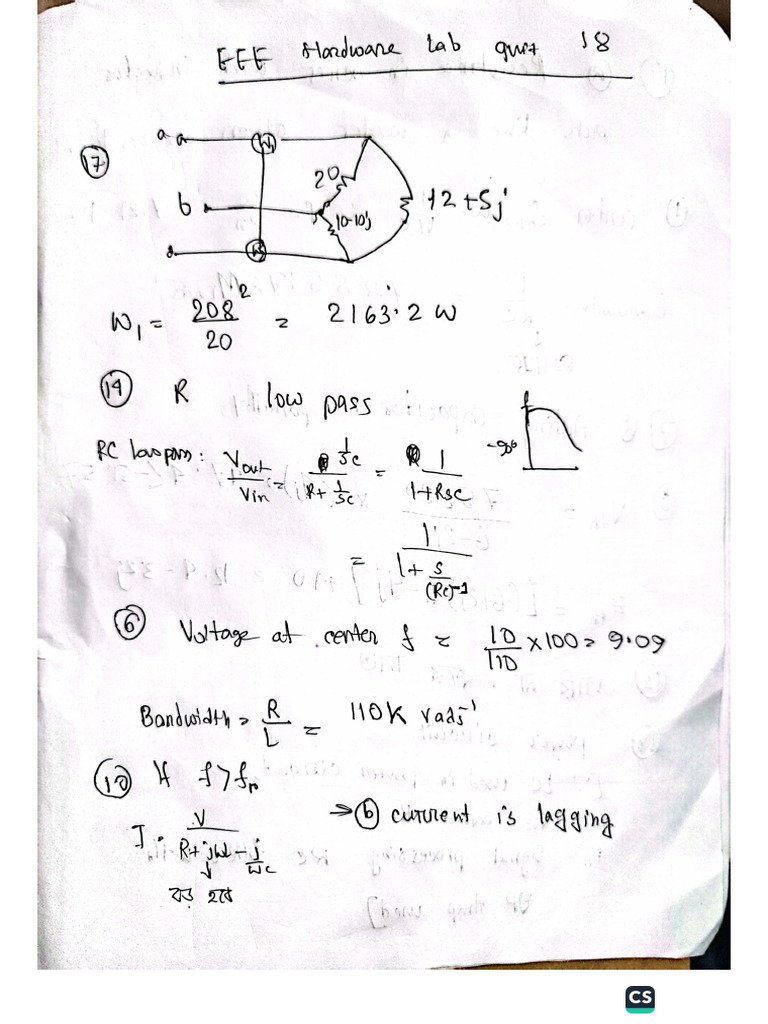 EEE Hardware Lab quiz 18
17
a a W1
20
b 12+5j
10-10j
W
W1 = 208² / 20 = 2163.2 W
14 R low pass
-90°
RC low pass: Vout/Vin = (1/sc) / (R + 1/sc) = 1 / (1+Rsc)
= 1 / (1 + s/(RC)-1)
6 Voltage at center f = 10/110 × 100 = 9.09
Bandwidth = R/L = 110K rads-1
10 If f > fr
I = V / (R + jW - j/wc) → b current is lagging
বড় হবে
CS